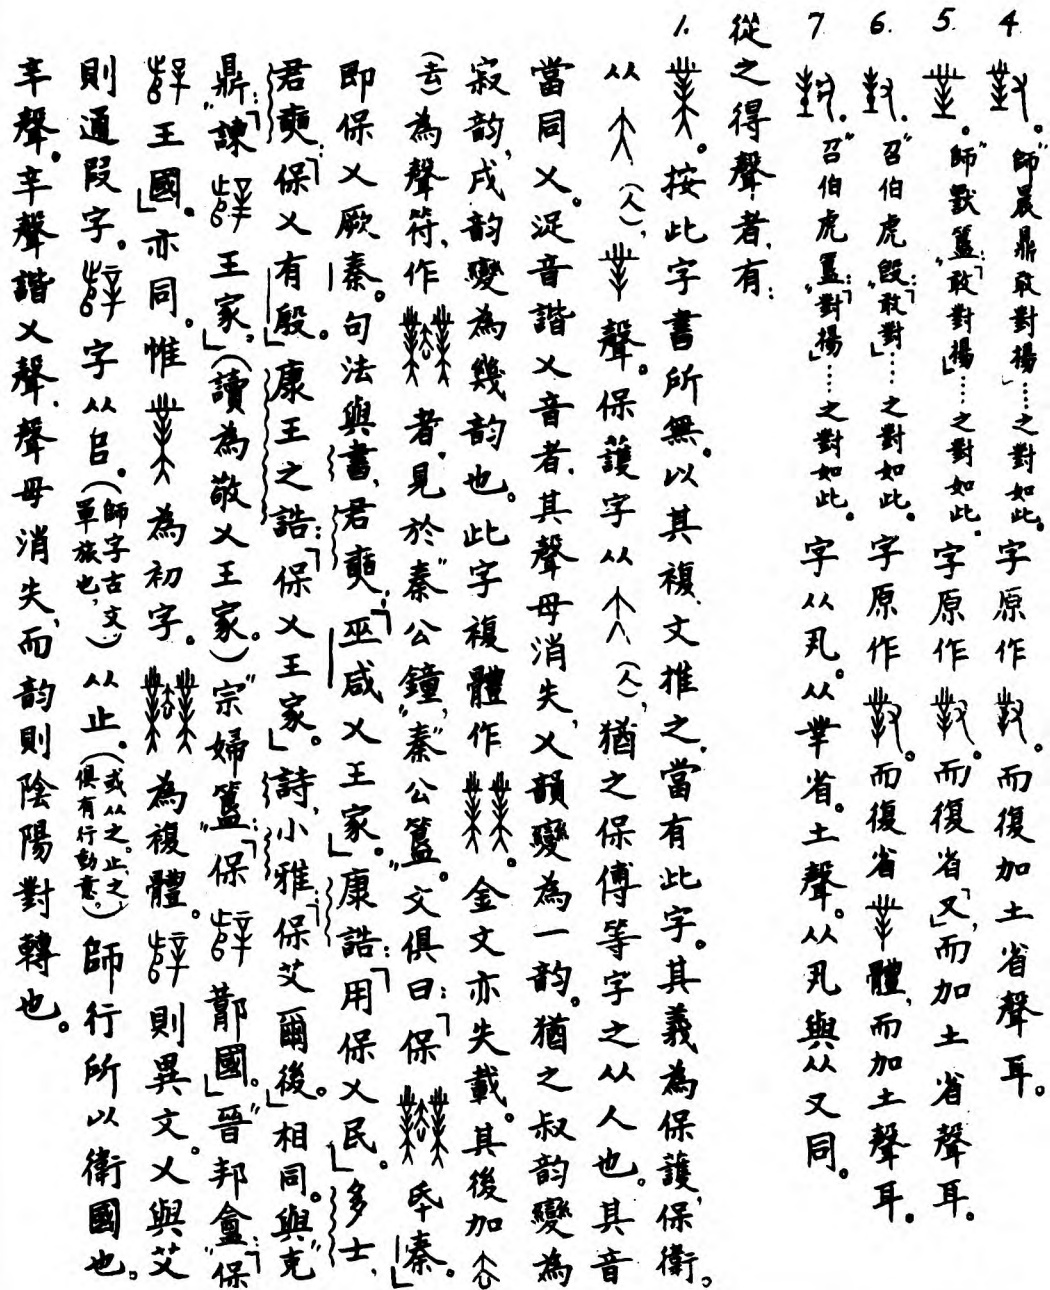 4. 。"師晨鼎"敢對揚」……之對如此。字原作。而復加土省聲耳。
5. 。"師㝨簋":「敢對揚」……之對如此。字原作。而復省「又」,而加土省聲耳。
6. 。"召伯虎毁":「敢對」……之對如此。字原作。而復省體,而加土聲耳。
7. 。"召伯虎簋":「對揚」……之對如此。字从丮。从丵省。土聲。从丮與从又同。
從之得聲者,有:
1. 。按此字書所無。以其複文推之,當有此字。其義為保護,保衛。
从(人),聲。保護字从(人),猶之保傅等字之从人也。其音
當同乂。浞音諧乂音者,其聲母消失,乂韻變為一韵。猶之叔韵變為
寂韵,戌韵變為幾韵也。此字複體作。金文亦失載。其後加
(去)為聲符,作者,見於"秦公鐘","秦公簋"。文俱曰:「保氒秦。」
即保乂厥秦。句法與書,君奭:「巫咸乂王家。」康誥:「用保乂民。」多士,
君奭:「保乂有殷。」康王之誥:「保乂王家。」詩,小雅:「保艾爾後。」相同。與"克
鼎":「諫王家,」(讀為敬乂王家。)"宗婦簋":「保鄁國。」"晉邦盦":「保
王國。」亦同。惟為初字。為複體。則異文。乂與艾
則通叚字。字从𠂤。(師字古文,軍旅也,)从止。(或从之。止,之,俱有行動意。)師行所以衛國也。
辛聲。辛聲諧乂聲,聲母消失,而韵則陰陽對轉也。